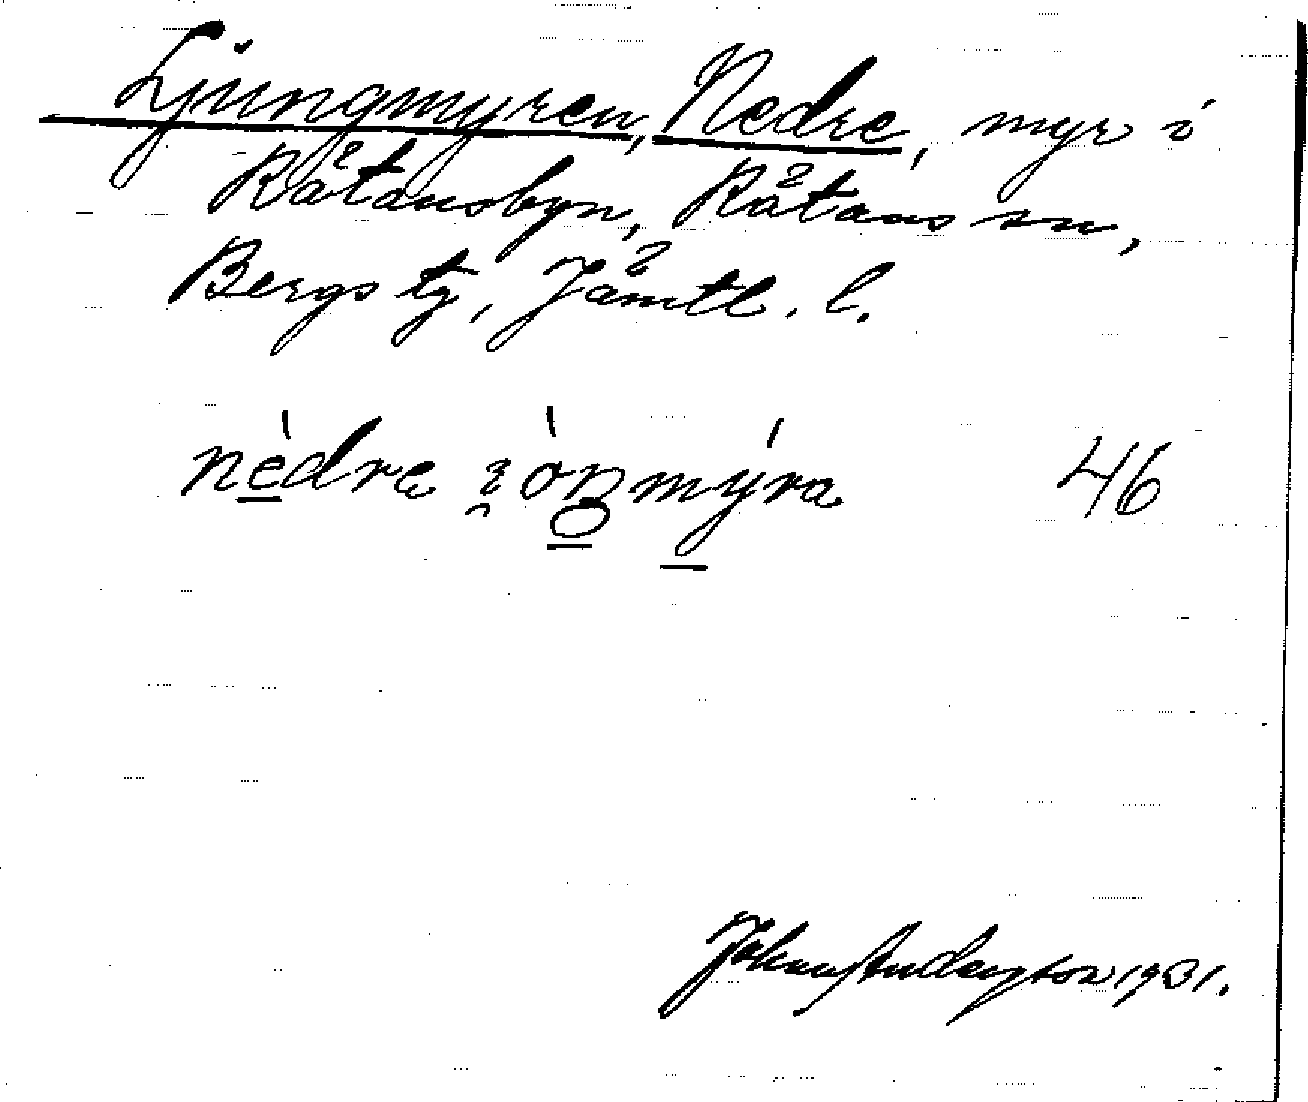 Ljungmyren, Nedre, myr i
Råtansbyn, Råtans sn,
Bergs tg, Jämtl. l.
nèdre 46
John Anderzon 1931.